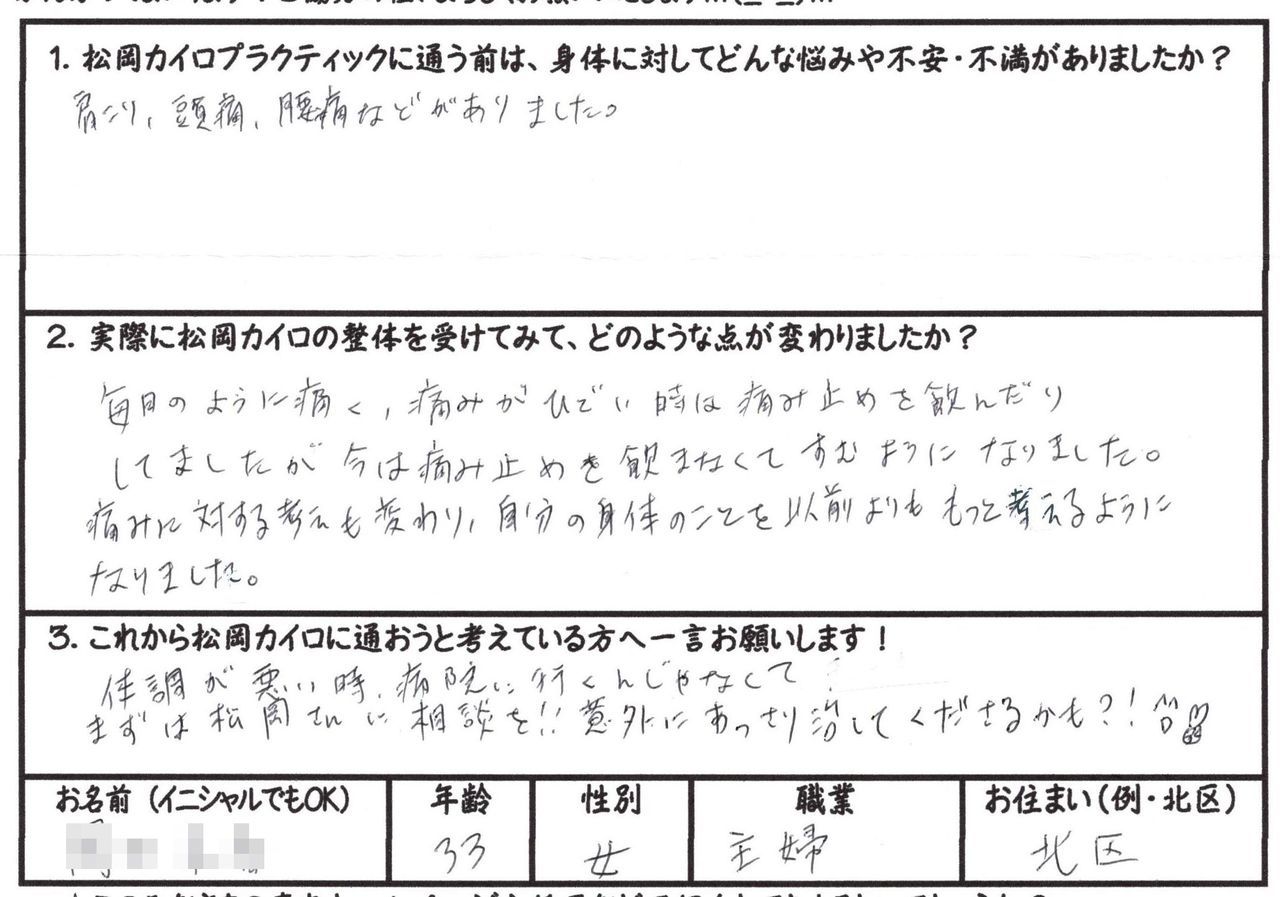 1. 松岡カイロプラクティックに通う前は、身体に対してどんな悩みや不安・不満がありましたか？
肩こり、頭痛、腰痛などがありました。
2. 実際に松岡カイロの整体を受けてみて、どのような点が変わりましたか？
毎日のように痛く、痛みがひどい時は痛み止めを飲んだり
してましたが今は痛み止めを飲まなくてすむようになりました。
痛みに対する考えも変わり、自分の身体のことを以前よりももっと考えるように
なりました。
3. これから松岡カイロに通おうと考えている方へ一言お願いします！
体調が悪い時、病院に行くんじゃなくて
まずは松岡さんに相談を!! 意外にあっさり治してくださるかも?!
お名前（イニシャルでもOK） 年齢 性別 職業 お住まい（例・北区）
33 女 主婦 北区